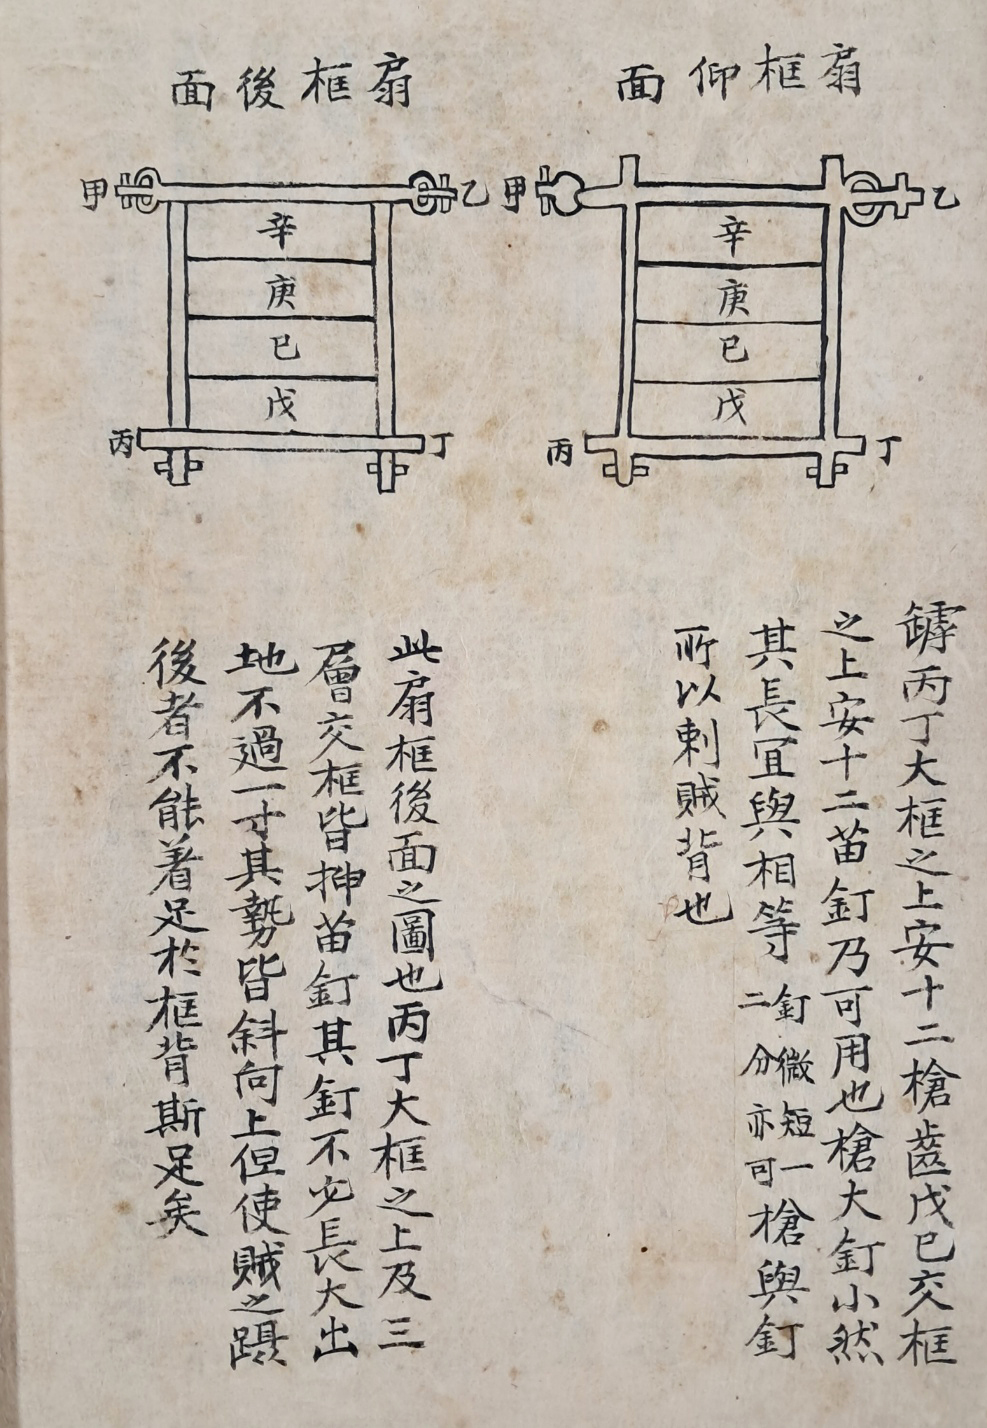 扇框仰面
甲
乙
辛
庚
巳
戊
丙
丁
鏬丙丁大框之上安十二槍齒戊巳交框
之上安十二苗釘乃可用也槍大釘小然
其長冝與相等釘微短一二分亦可槍與釘
所以刺賊背也
扇框後面
甲
乙
辛
庚
巳
戊
丙
丁
此扇框後面之圖也丙丁大框之上及三
層交框皆抻苗釘其釘不必長大出
地不過一寸其勢皆斜向上但使賊之躡
後者不能著足於框背斯足矣